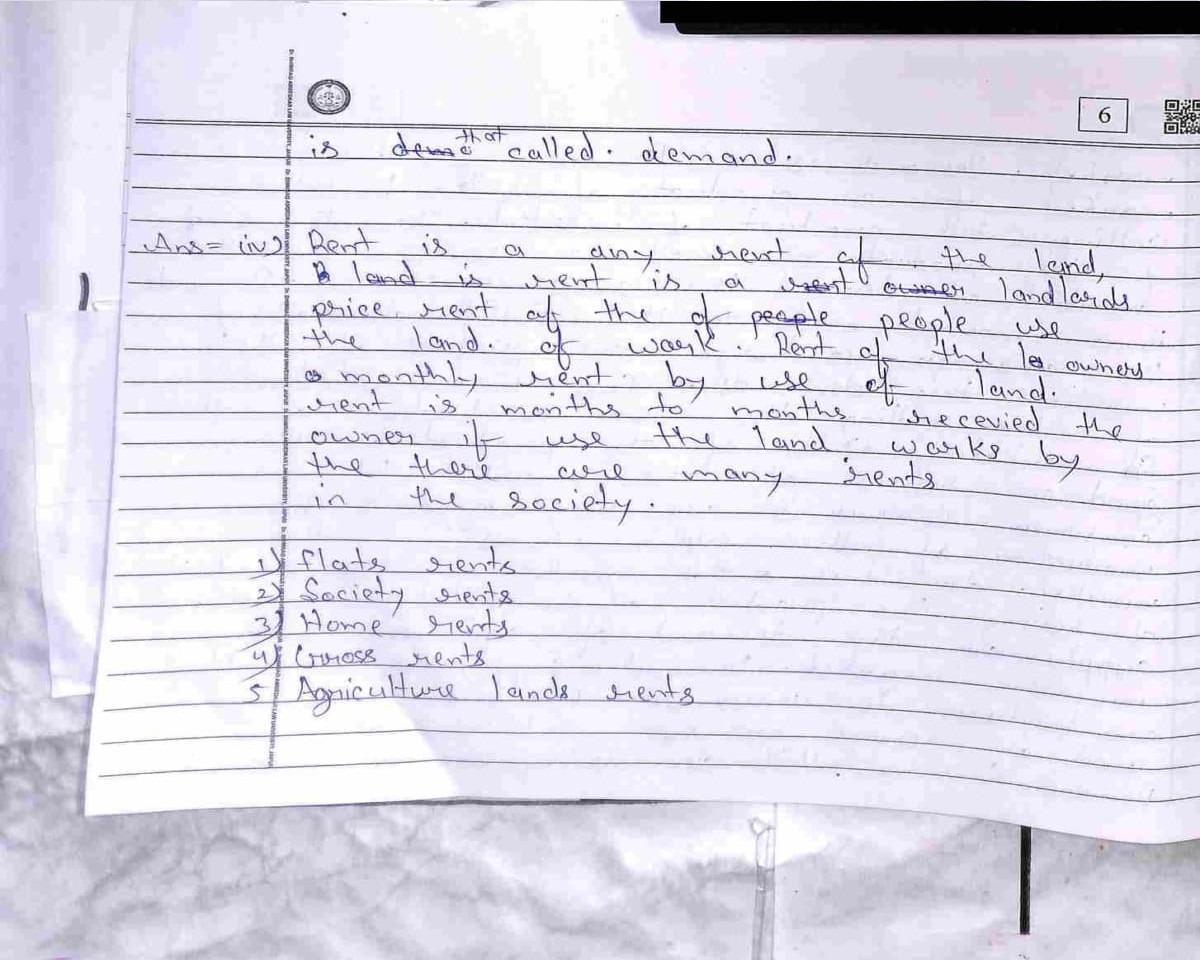 6
is that called. demand.
Ans= (iv) Rent is a any rent of the land,
land is rent is a rent owner landlords
price rent of the of people people use
the land. of work. Rent of the owners
monthly rent by use of land.
rent is months to months recevied the
owner if use the land works by
the there are many rents
in the society.
1) flats rents
2) Society rents
3) Home rents
4) Gross rents
5 Agriculture lands rents